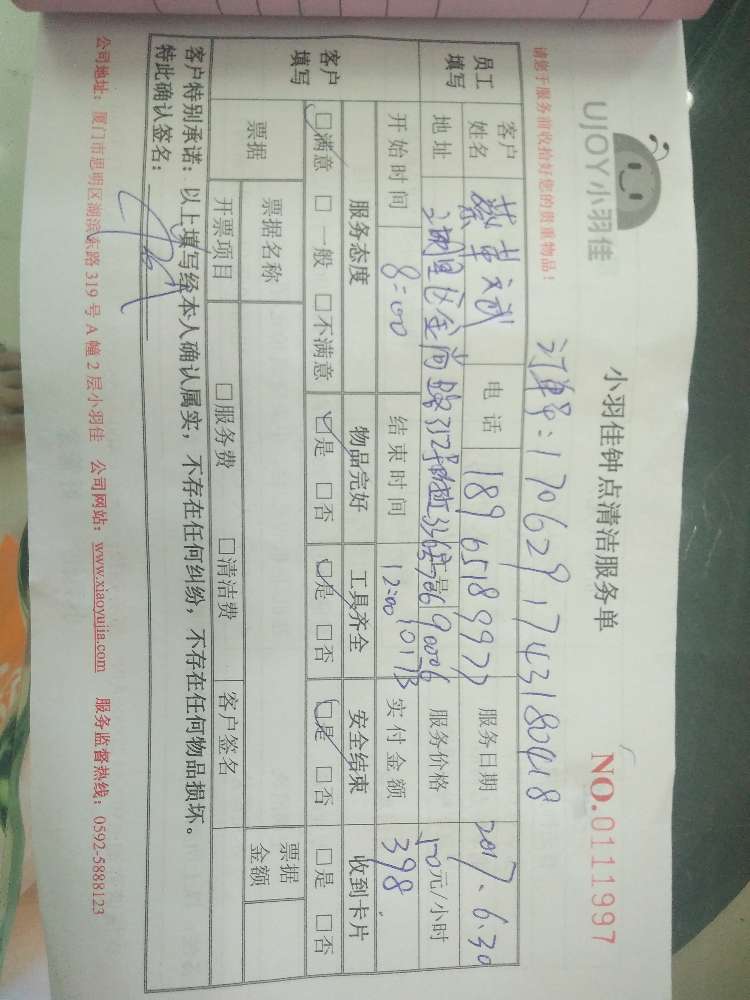 UJOY小羽佳
小羽佳钟点清洁服务单
NO.0111997
请您于服务前收拾好您的贵重物品!
订单号:1706291743180418
员工填写
客户姓名 蔡革文武 电话 18965189977 服务日期 2017.6.30
地址 湖里区金尚路 服务价格 50元/小时
开始时间 8:00 结束时间 12:00 实付金额 398
客户填写
服务态度 物品完好 工具齐全 安全结束 收到卡片
☑满意 □一般 □不满意 ☑是 □否 ☑是 □否 ☑是 □否 □是 □否
票据 票据名称 票据金额
开票项目 □服务费 □清洁费 客户签名
客户特别承诺:以上填写经本人确认属实,不存在任何纠纷,不存在任何物品损坏。
特此确认签名:
公司地址:厦门市思明区湖滨东路319号A幢2层小羽佳 公司网站:www.xiaoyujia.com 服务监督热线:0592-5888123